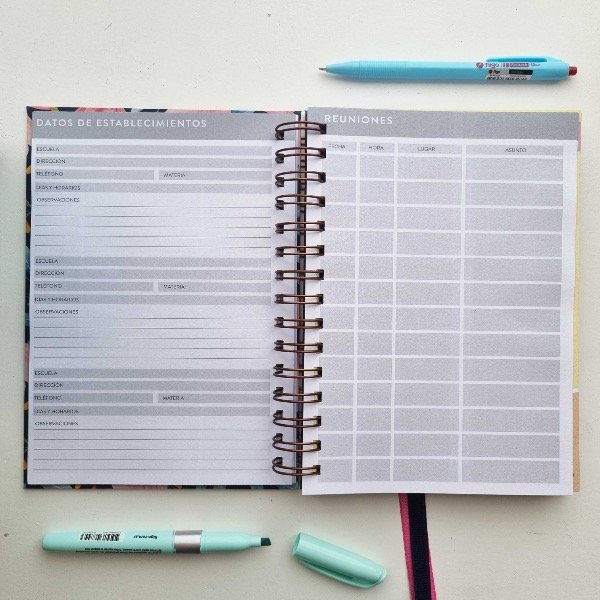 DATOS DE ESTABLECIMIENTOS
ESCUELA
DIRECCIÓN
TELÉFONO MATERIA
DÍAS Y HORARIOS
OBSERVACIONES
ESCUELA
DIRECCIÓN
TELÉFONO MATERIA
DÍAS Y HORARIOS
OBSERVACIONES
ESCUELA
DIRECCIÓN
TELÉFONO MATERIA
DÍAS Y HORARIOS
OBSERVACIONES
REUNIONES
FECHA HORA LUGAR ASUNTO